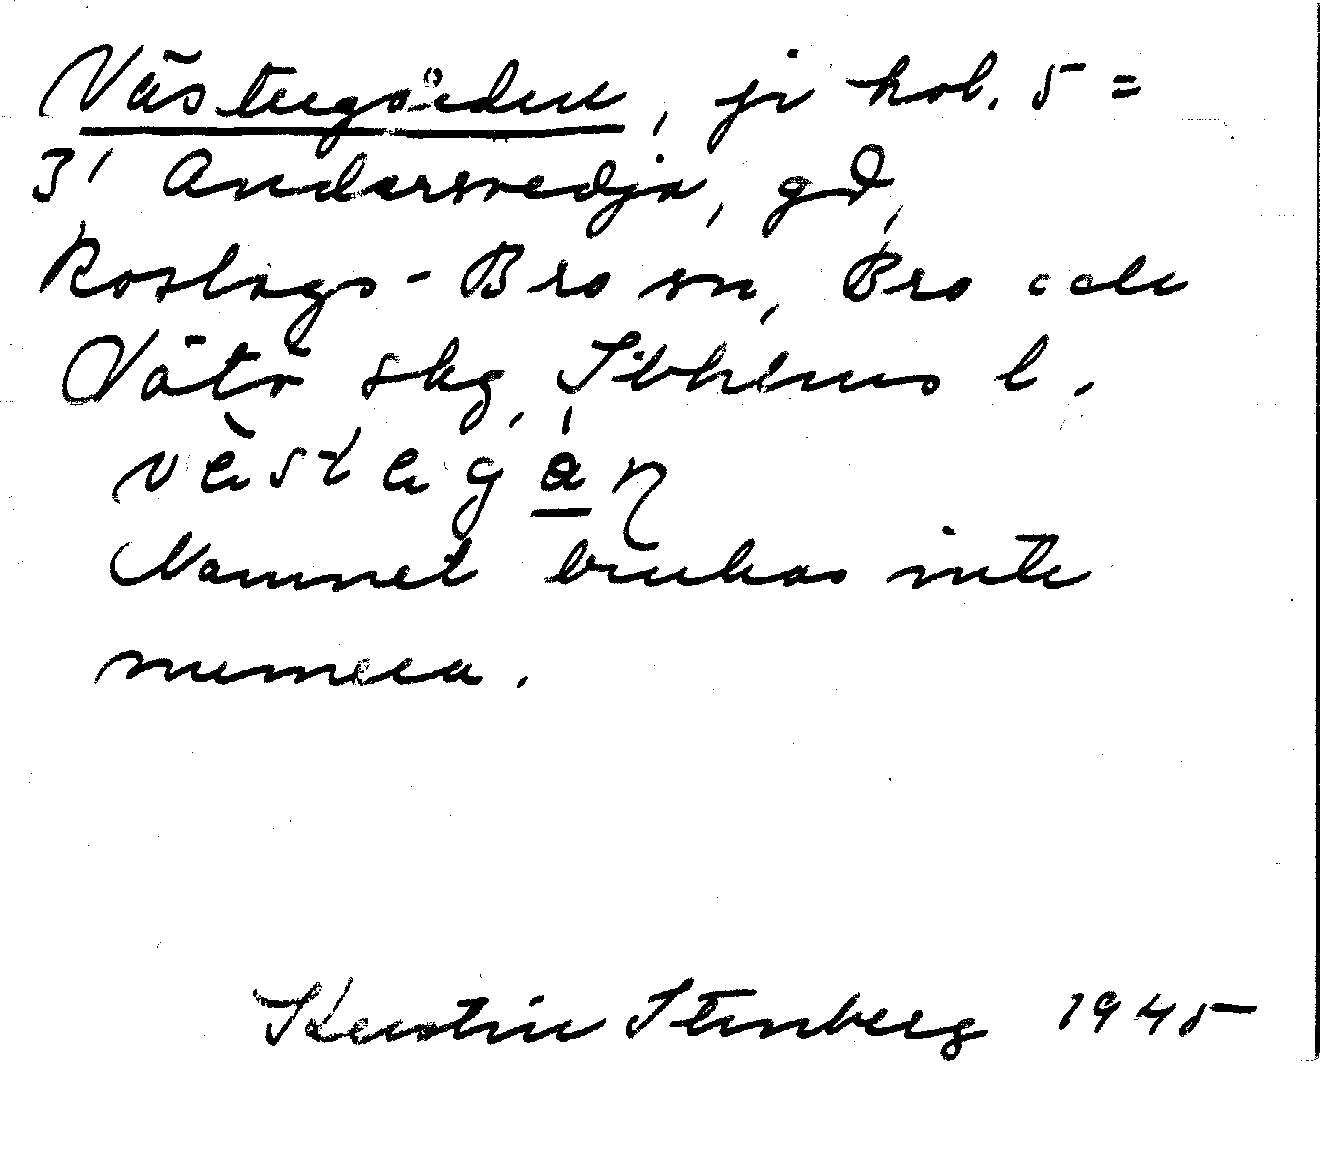 Västergården, ji kol. 5 =
3¹ Andersvedja, gd,
Roslags-Bro sn, Bro och
Vätö skg, Sthlms l.
västegan
Namnet brukas inte
numera.
Kerstin Stenberg 1945